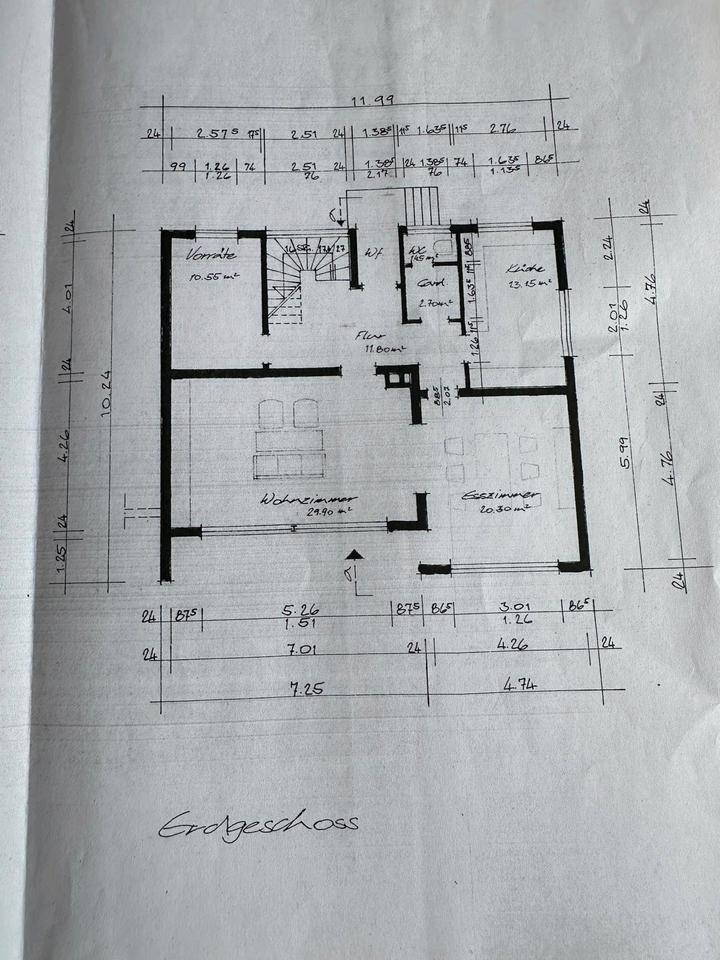 11.99
24 2.57⁵ 17⁵ 2.51 24 1.38⁵ 11⁵ 1.63⁵ 11⁵ 2.76 24
99 1.26 74 2.51 24 1.38⁵ 24 1.38⁵ 74 1.63⁵ 86⁵
1.26 76 2.17 76 1.13⁵
24
4.01
24
4.26
24
1.25
10.24
Vorräte
10.55 m²
Wf
WC
1.45 m²
Gard
2.70 m²
88⁵
11⁵
1.63⁵
11⁵
1.26
Küche
13.15 m²
Flur
11.80 m²
88⁵
2.07
Wohnzimmer
29.90 m²
Esszimmer
20.30 m²
a
2.24
2.01
1.26
5.99
24
4.76
24
4.76
24
24 87⁵ 5.26 87⁵ 86⁵ 3.01 86⁵
1.51 1.26
24 7.01 24 4.26 24
7.25 4.74
Erdgeschoss